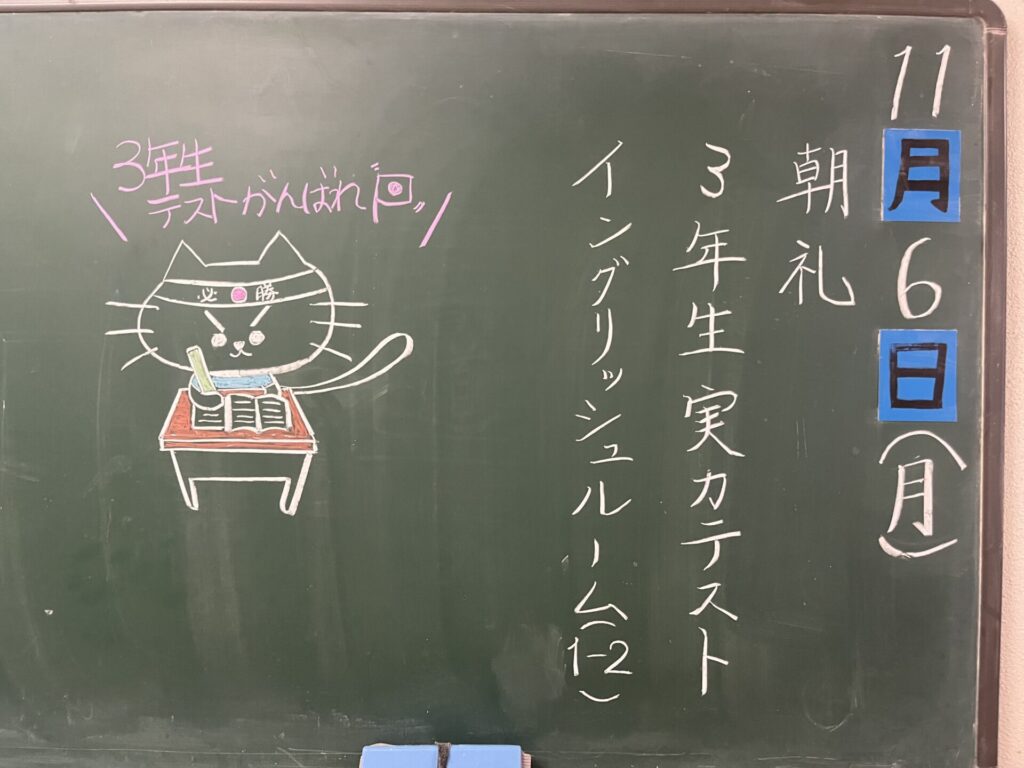 11月6日(月)
朝礼
3年生実力テスト
イングリッシュルーム(1-2)
3年生
テストがんばれ回
必勝